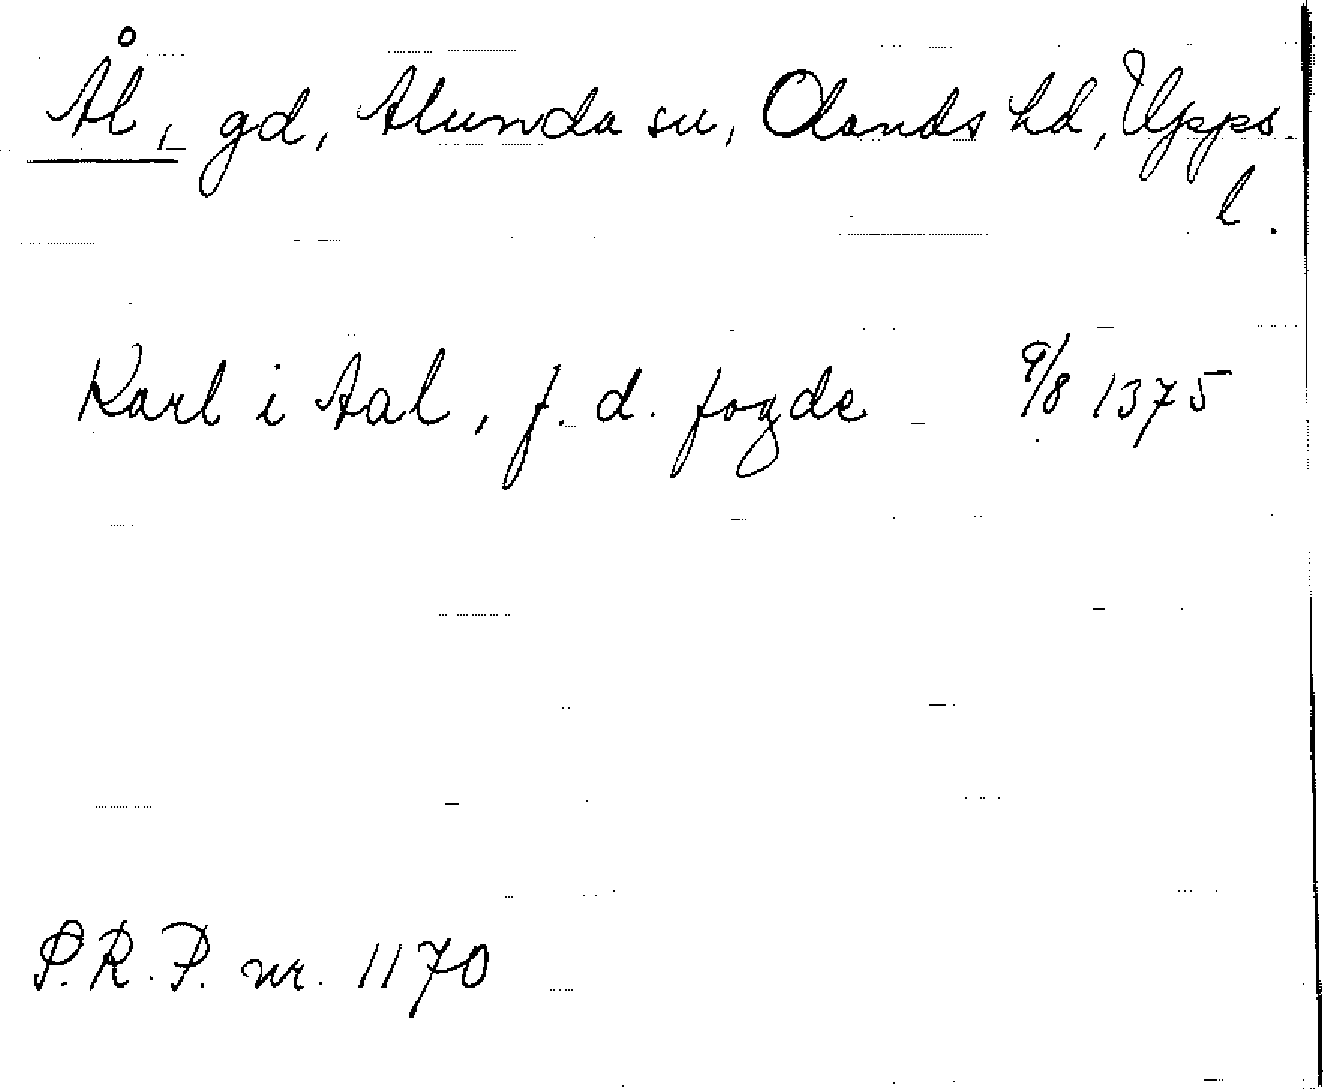 Ål, gd, Alunda sn, Olands hd, Upps.
l.
Karl i Aal, f. d. fogde 9/8 1375
S.R.P. nr. 1170